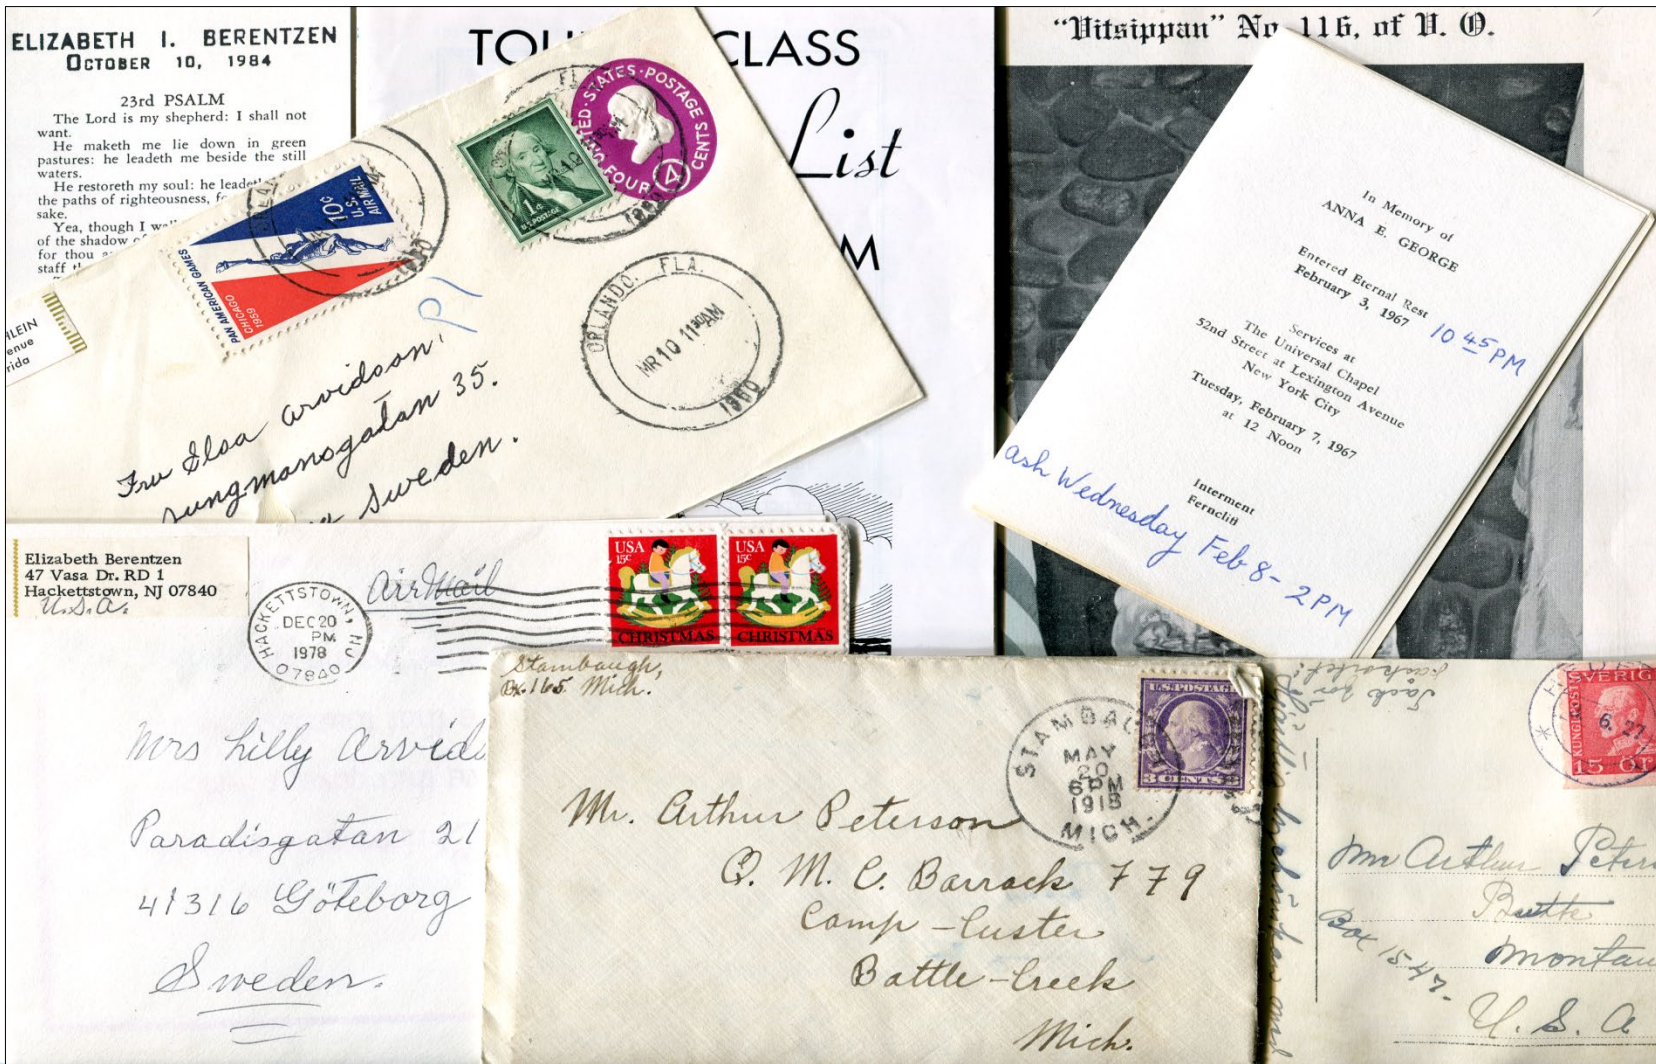 ELIZABETH I. BERENTZEN
OCTOBER 10, 1984
23rd PSALM
The Lord is my shepherd: I shall not
want.
He maketh me lie down in green
pastures: he leadeth me beside the still
waters.
He restoreth my soul: he
the paths of righteousness,
sake.
Yea, though I
of the shadow
for thou
staff
CLASS
List
"Vitsippan" No. 116, of V. O.
UNITED STATES POSTAGE
FOUR 4 CENTS
1¢
U.S. POSTAGE
10¢
U.S.
AIR MAIL
PAN AMERICAN GAMES
CHICAGO
1959
1960
ORLANDO, FLA.
MR 10 11 30 AM
1960
Fru Elsa Arvidson,
35.
Sweden.
In Memory of
ANNA E. GEORGE
Entered Eternal Rest
February 3, 1967
10 45 PM
Services at
The Universal Chapel
52nd Street at Lexington Avenue
New York City
Tuesday, February 7, 1967
at 12 Noon
Interment
Ferncliff
Ash Wednesday Feb 8 - 2 PM
Elizabeth Berentzen
47 Vasa Dr. RD 1
Hackettstown, NJ 07840
U.S.A.
HACKETTSTOWN, NJ
DEC 20
PM
1978
07840
Air Mail
USA
15c
CHRISTMAS
USA
15c
CHRISTMAS
Mrs Lilly
Paradisgatan 21
41316 Göteborg
Sweden.
Stambaugh,
Bx. 165 Mich.
MAY
20
6 PM
1918
MICH.
U.S. POSTAGE
3 CENTS 3
Mr. Arthur Peterson
Q. M. C. Barrack 779
Camp - Custer
Battle - Creek
Mich.
Tack för
15 ÖRE
6. 27
Mr Arthur
Butte
Box 1547.
U. S. A